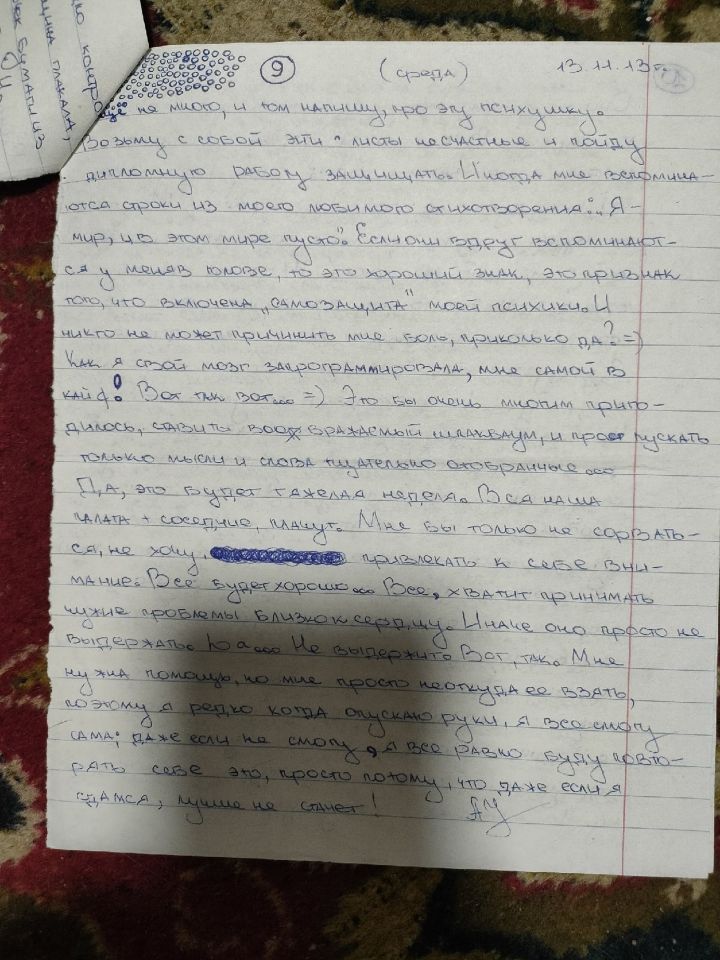 дко контро
щина плакала,
бумаги из
9 (среда) 13.11.13г.
ещё не много, и том напишу, про эту психушку.
Возьму с собой эти листы несчастные и пойду
дипломную работу защищать. Иногда мне вспомина-
ются строки из моего любимого стихотворения: „Я-
мир, и в этом мире пусто". Если они вдруг вспоминают-
ся у меня в голове, то это хороший знак, это признак
того, что включена „самозащита" моей психики. И
никто не может причинить мне боль, прикольно да? =)
Как я свой мозг запрограммировала, мне самой в
кайф! Вот так вот... =) Это бы очень многим приго-
дилось, ставить воображаемый шлакбаум, и пропускать
только мысли и слова тщательно отобранные...
Д,а, это будет тяжелая неделя. Вся наша
палата + соседние, плачут. Мне бы только не сорвать-
ся, не хочу, привлекать к себе вни-
мание. Все будет хорошо... Все, хватит принимать
чужие проблемы близко к сердцу. Иначе оно просто не
выдержать. Не выдержит. Вот, так. Мне
нужна помощь, но мне просто неоткуда ее взять,
поэтому я редко когда опускаю руки, я все смогу
сама; даже если не смогу, я все равно буду повто-
рять себе это, просто потому, что даже если я
сдамся, лучше не станет!